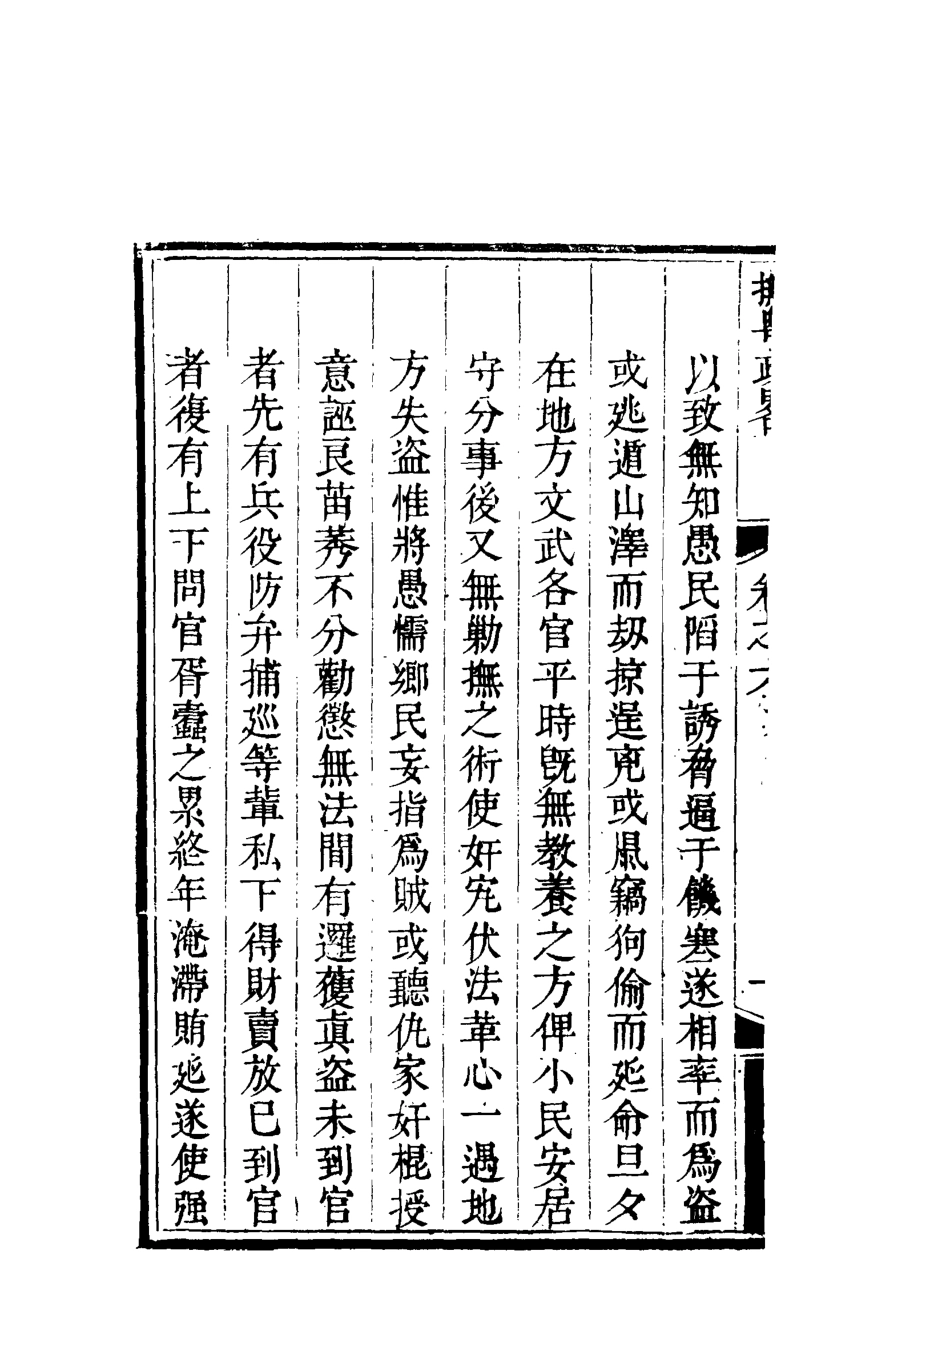 以致無知愚民陷于誘脅逼于饑寒遂相率而為盜
或逃遁山澤而劫掠逞兇或鼠竊狗偷而延命旦夕
在地方文武各官平時既無教養之方俾小民安居
守分事後又無勦撫之術使奸宄伏法革心一遇地
方失盜惟將愚懦鄉民妄指為賊或聽仇家奸棍授
意誣良苗莠不分勸懲無法間有邏獲真盜未到官
者先有兵役防弁捕廵等輩私下得財賣放已到官
者復有上下問官胥蠹之累終年淹滯賄延遂使强